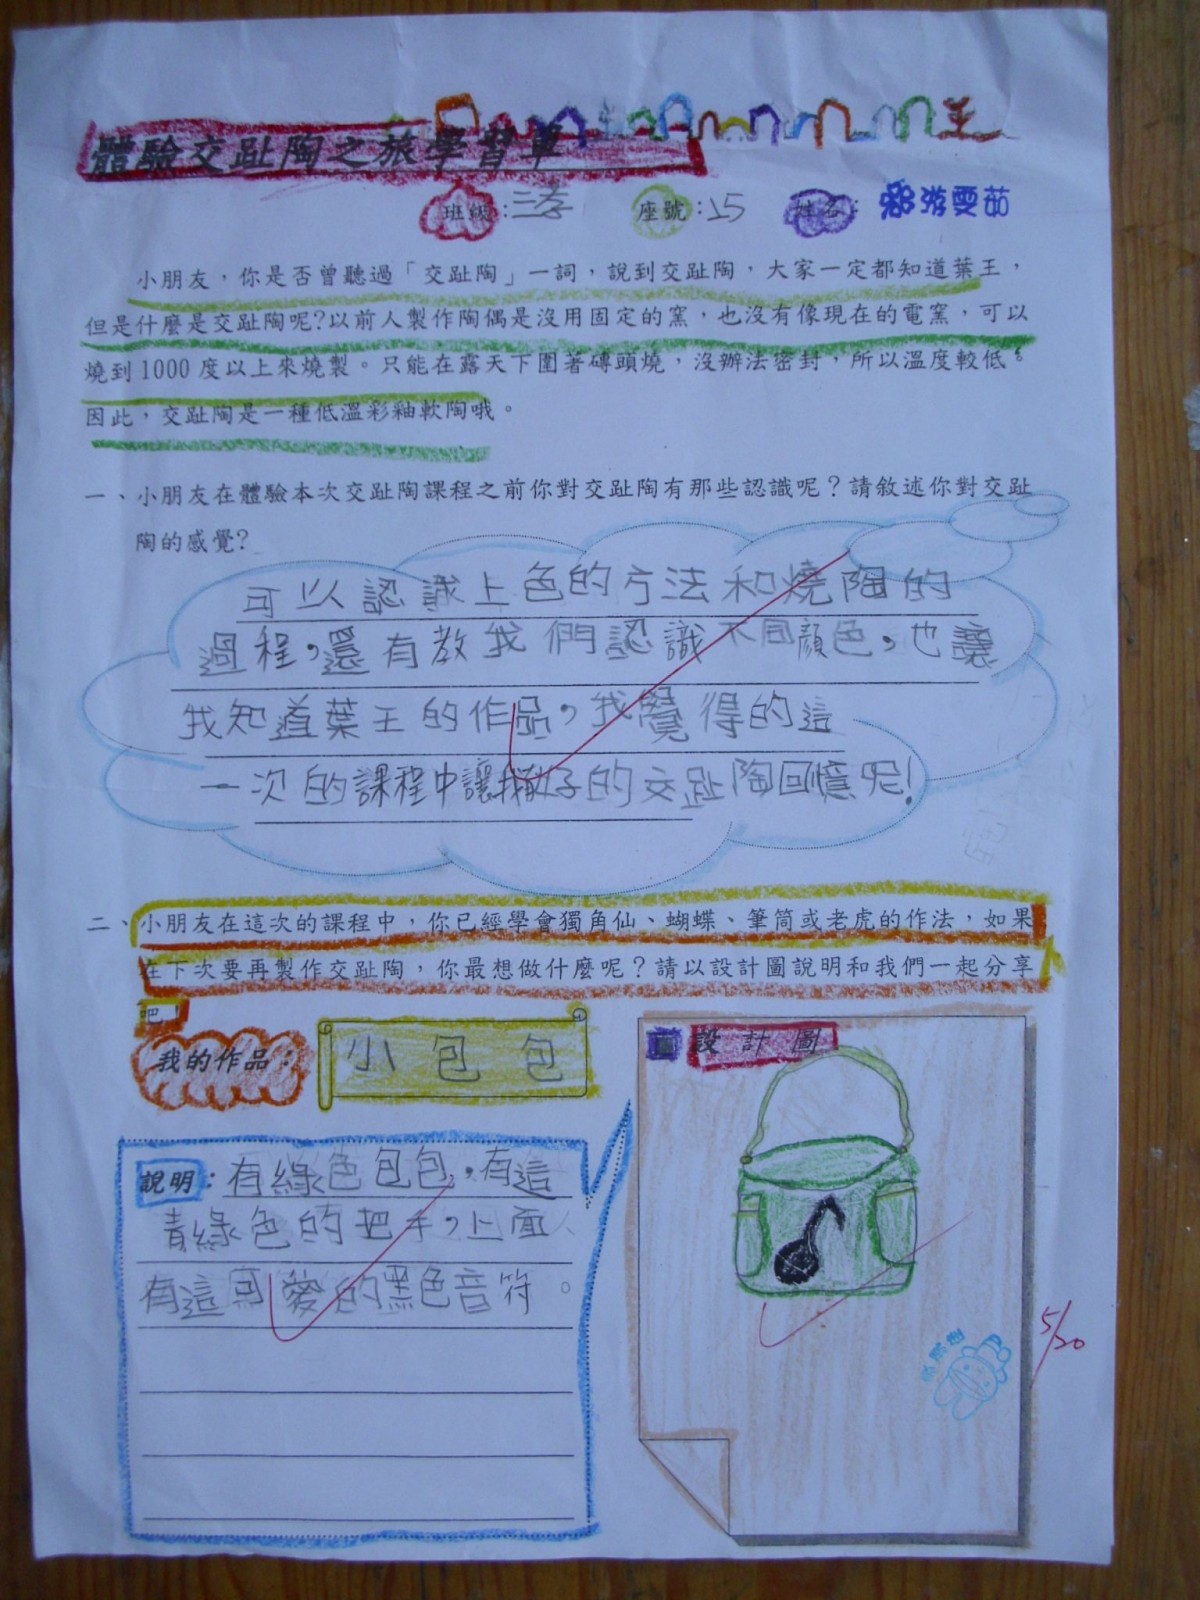 體驗交趾陶之旅學習單
班級：三孝 座號：15 姓名：游雯茹
小朋友，你是否曾聽過「交趾陶」一詞，說到交趾陶，大家一定都知道葉王，
但是什麼是交趾陶呢?以前人製作陶偶是沒用固定的窯，也沒有像現在的電窯，可以
燒到1000度以上來燒製。只能在露天下圍著磚頭燒，沒辦法密封，所以溫度較低。
因此，交趾陶是一種低溫彩釉軟陶哦。
一、小朋友在體驗本次交趾陶課程之前你對交趾陶有那些認識呢？請敘述你對交趾
陶的感覺?
可以認識上色的方法和燒陶的
過程，還有教我們認識不同顏色，也讓
我知道葉王的作品，我覺得的這
一次的課程中讓我子的交趾陶回憶呢!
二、小朋友在這次的課程中，你已經學會獨角仙、蝴蝶、筆筒或老虎的作法，如果
在下次要再製作交趾陶，你最想做什麼呢？請以設計圖說明和我們一起分享
吧!
我的作品： 小包包
■設計圖
說明：有綠色包包，有這
青綠色的把手，上面
有這可愛的黑色音符。
5/20